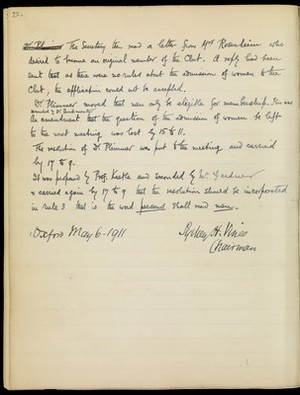 22.
Dr Plimmer The Secretary then read a letter from Mrs Rosenheim who
desired to become an original member of the Club. A reply had been
sent that as there were no rules about the admission of women to the
Club, the application could not be accepted.
Dr. Plimmer moved that men only be eligible for membership. This was
seconded by Dr.
An amendment that the question of the admission of women be left
to the next meeting was lost by 15 to 11.
The resolution of Dr. Plimmer was put to the meeting, and carried
by 17 to 9.
It was proposed by Prof. Kastle and seconded by Mr. Gardner
& carried again by 17 to 9 that the resolution should be incorporated
in rule 3 that is the word person shall read man.
Oxford May 6 - 1911
Sydney H. Vines
Chairman